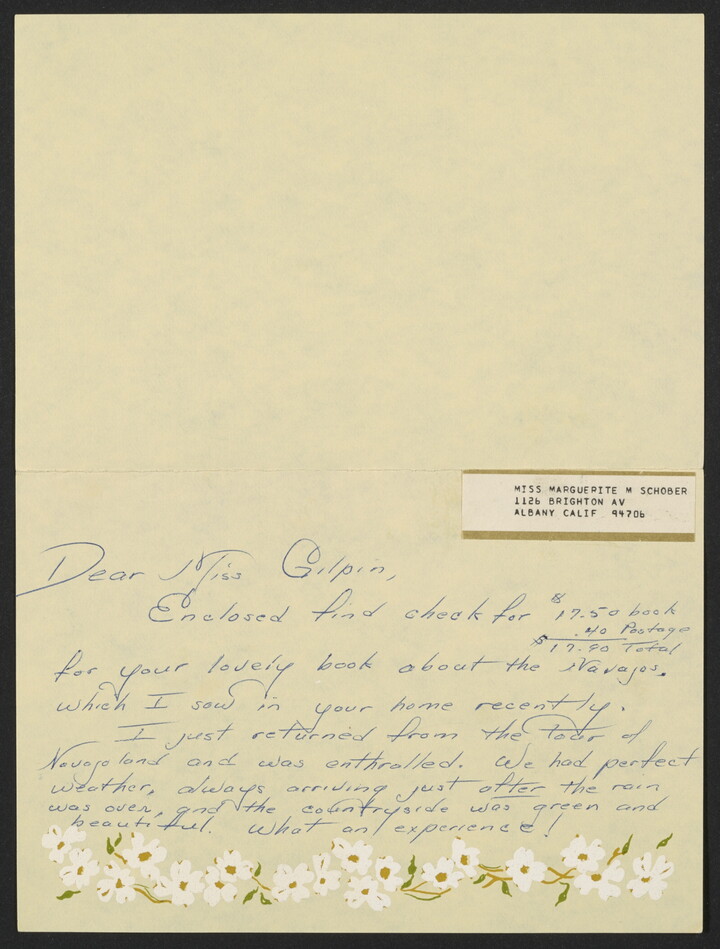 MISS MARGUERITE M SCHOBER
1126 BRIGHTON AV
ALBANY CALIF 94706
Dear Miss Gilpin,
Enclosed find check for $17.50 book
.40 Postage
$17.90 Total
for your lovely book about the Navajos.
which I saw in your home recently.
I just returned from the Tour of
Navajoland and was enthralled. We had perfect
weather, always arriving just after the rain
was over, and the countryside was green and
beautiful. What an experience!